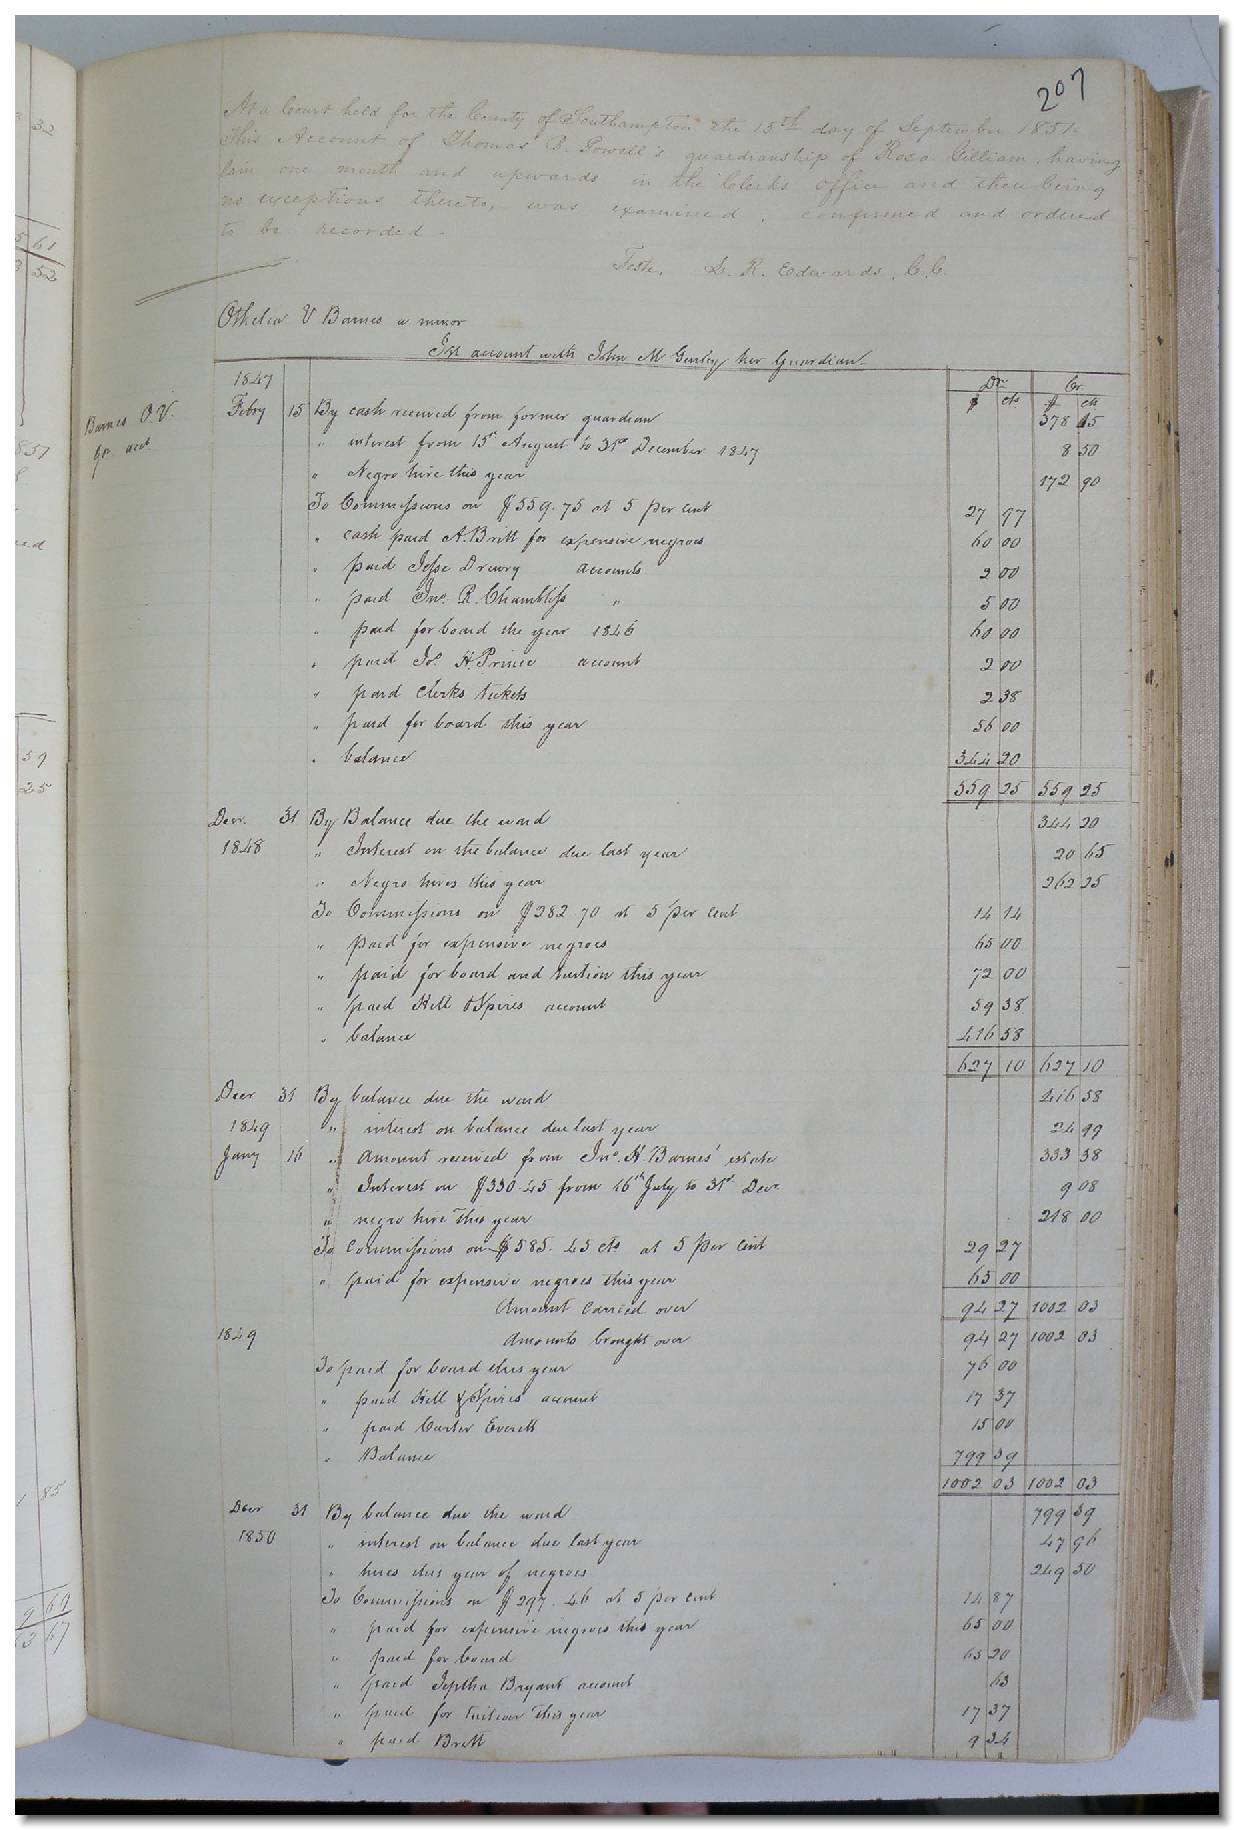 207
At a Court held for the County of Southampton the 15th day of September 1851.
This Account of Thomas B. Powell's guardianship of Rosa Gilliam, having
lain one month and upwards in the Clerk's office and there being
no exceptions thereto, was examined, confirmed and ordered
to be recorded.
Teste, L. R. Edwards, C.C.
Othelia V Barnes a minor
In account with John M Gurley her Guardian
Dr Cr
1847 $ cts $ cts
Barnes O.V.
gr. acct.
Febry 15 By cash received from former guardian 378 15
" interest from 15th August to 31st December 1847 8 50
" Negro hire this year 172 90
To Commissions on $559.75 at 5 per cent 27 97
" cash paid A. Britt for expensive negroes 60 00
" paid Jesse Drewry accounts 2 00
" paid Jno. R. Chambliss " 5 00
" paid for board the year 1846 60 00
" paid Jos. H. Prince account 2 00
" paid clerks tickets 2 38
" paid for board this year 56 00
" balance 344 20
559 25 559 25
Decr. 31 By Balance due the ward 344 20
1848 " Interest on the balance due last year 20 65
" Negro hires this year 262 25
To Commissions on $282.70 at 5 per cent 14 14
" paid for expensive negroes 65 00
" paid for board and tuition this year 72 00
" paid Kell & Spires account 59 38
" balance 416 58
627 10 627 10
Decr 31 By balance due the ward 416 58
1849 " interest on balance due last year 24 99
Jany 16 " Amount received from Jno. H. Barnes' estate 333 38
" Interest on $330.45 from 16th July to 31st Decr 9 08
" negro hire this year 218 00
To Commissions on $585.45 cts at 5 per cent 29 27
" paid for expensive negroes this year 65 00
Amount carried over 94 27 1002 03
1849 Amounts brought over 94 27 1002 03
To paid for board this year 76 00
" paid Kell & Spires account 17 37
" paid Carter Everett 15 00
" Balance 799 39
1002 03 1002 03
Decr 31 By balance due the ward 799 39
1850 " interest on balance due last year 47 96
" hires this year of negroes 249 50
To Commissions on $297.46 at 5 per cent 14 87
" paid for expensive negroes this year 65 00
" paid for board 65 20
" paid Jeptha Bryant account 63
" paid for tuition this year 17 37
" paid Britt 9 34